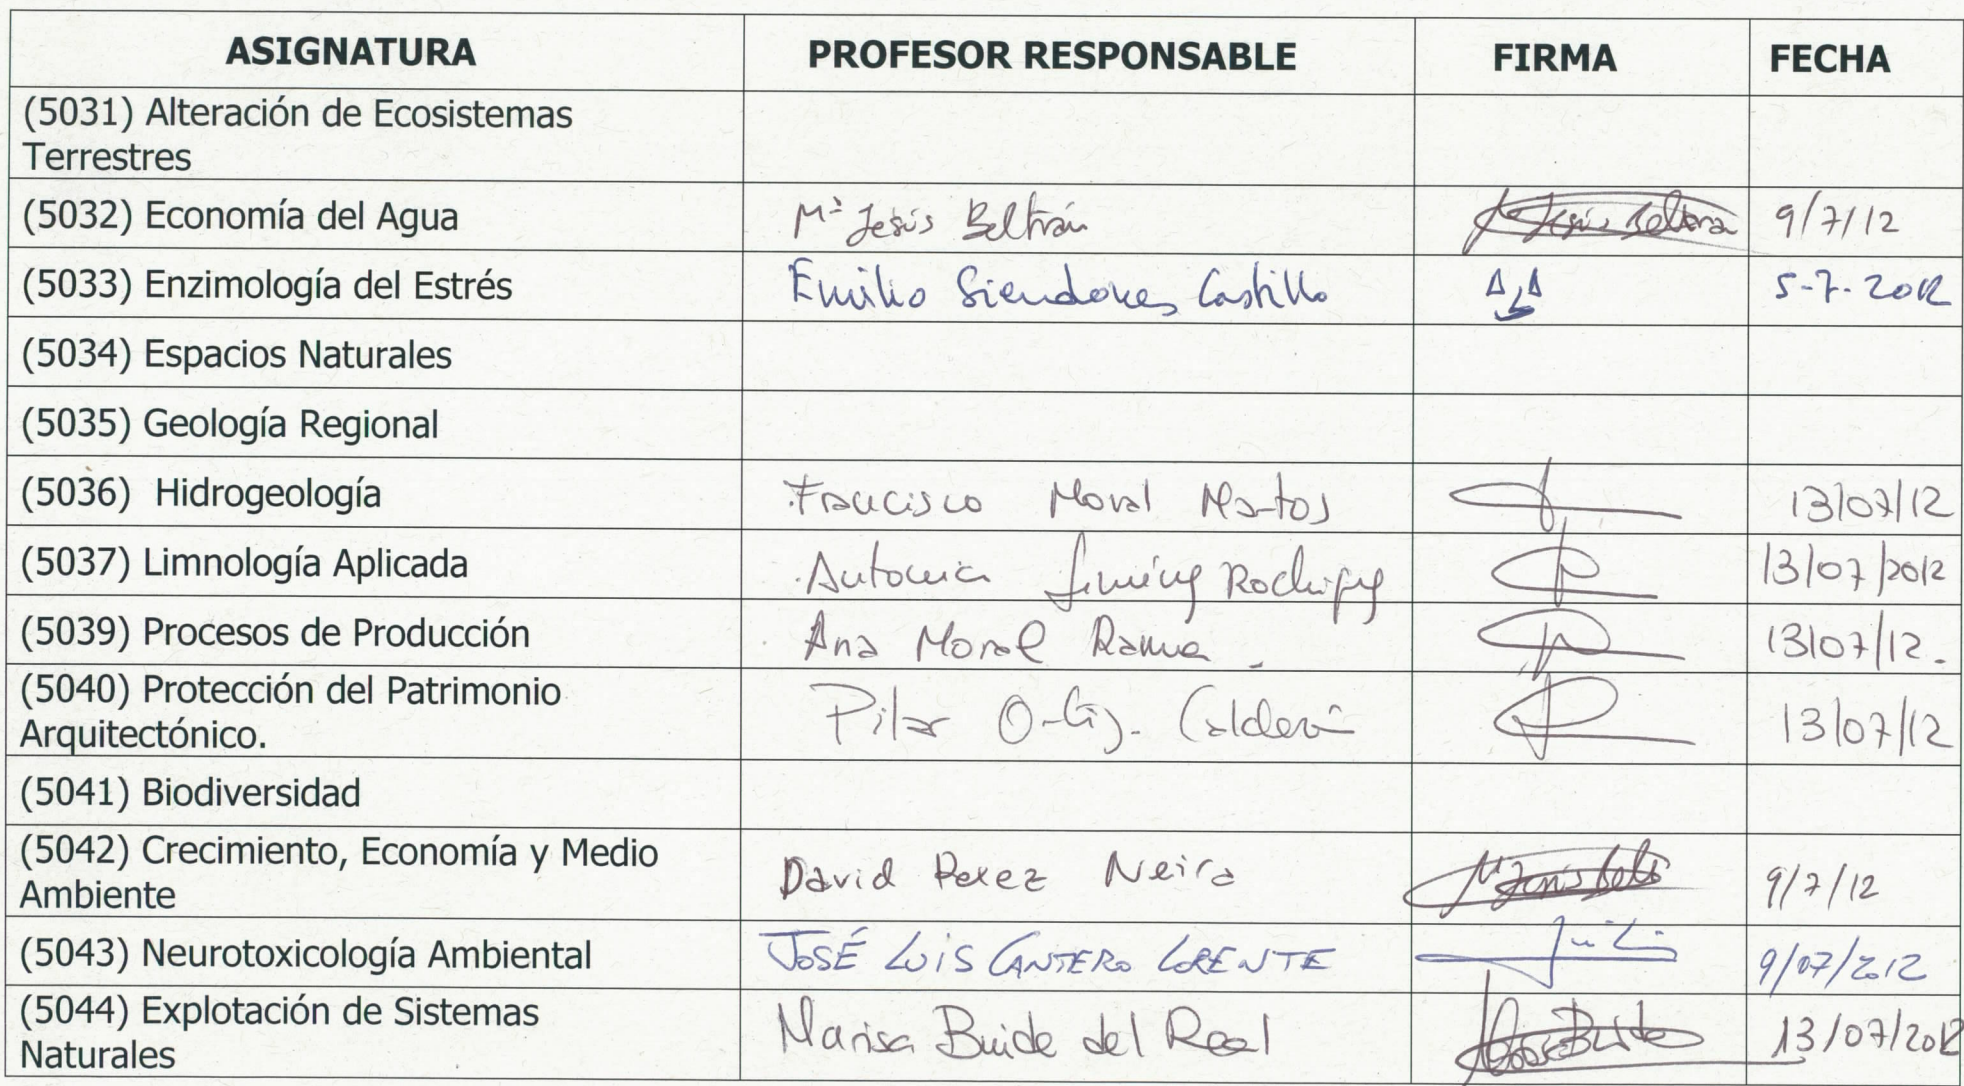 ASIGNATURA PROFESOR RESPONSABLE FIRMA FECHA
(5031) Alteración de Ecosistemas
Terrestres
(5032) Economía del Agua Mª Jesús Beltrán Mª Jesús Beltrán 9/7/12
(5033) Enzimología del Estrés Emilio Siendones Castillo 5-7-2012
(5034) Espacios Naturales
(5035) Geología Regional
(5036) Hidrogeología Francisco Moral Martos 13/07/12
(5037) Limnología Aplicada Antonia Jiménez Rodríguez 13/07/2012
(5039) Procesos de Producción Ana Moral Rama 13/07/12.
(5040) Protección del Patrimonio
Arquitectónico. Pilar Ortiz Calderón 13/07/12
(5041) Biodiversidad
(5042) Crecimiento, Economía y Medio
Ambiente David Perez Neira 9/7/12
(5043) Neurotoxicología Ambiental JOSÉ LUIS CANTERO LORENTE 9/07/2012
(5044) Explotación de Sistemas
Naturales Marisa Buide del Real 13/07/2012